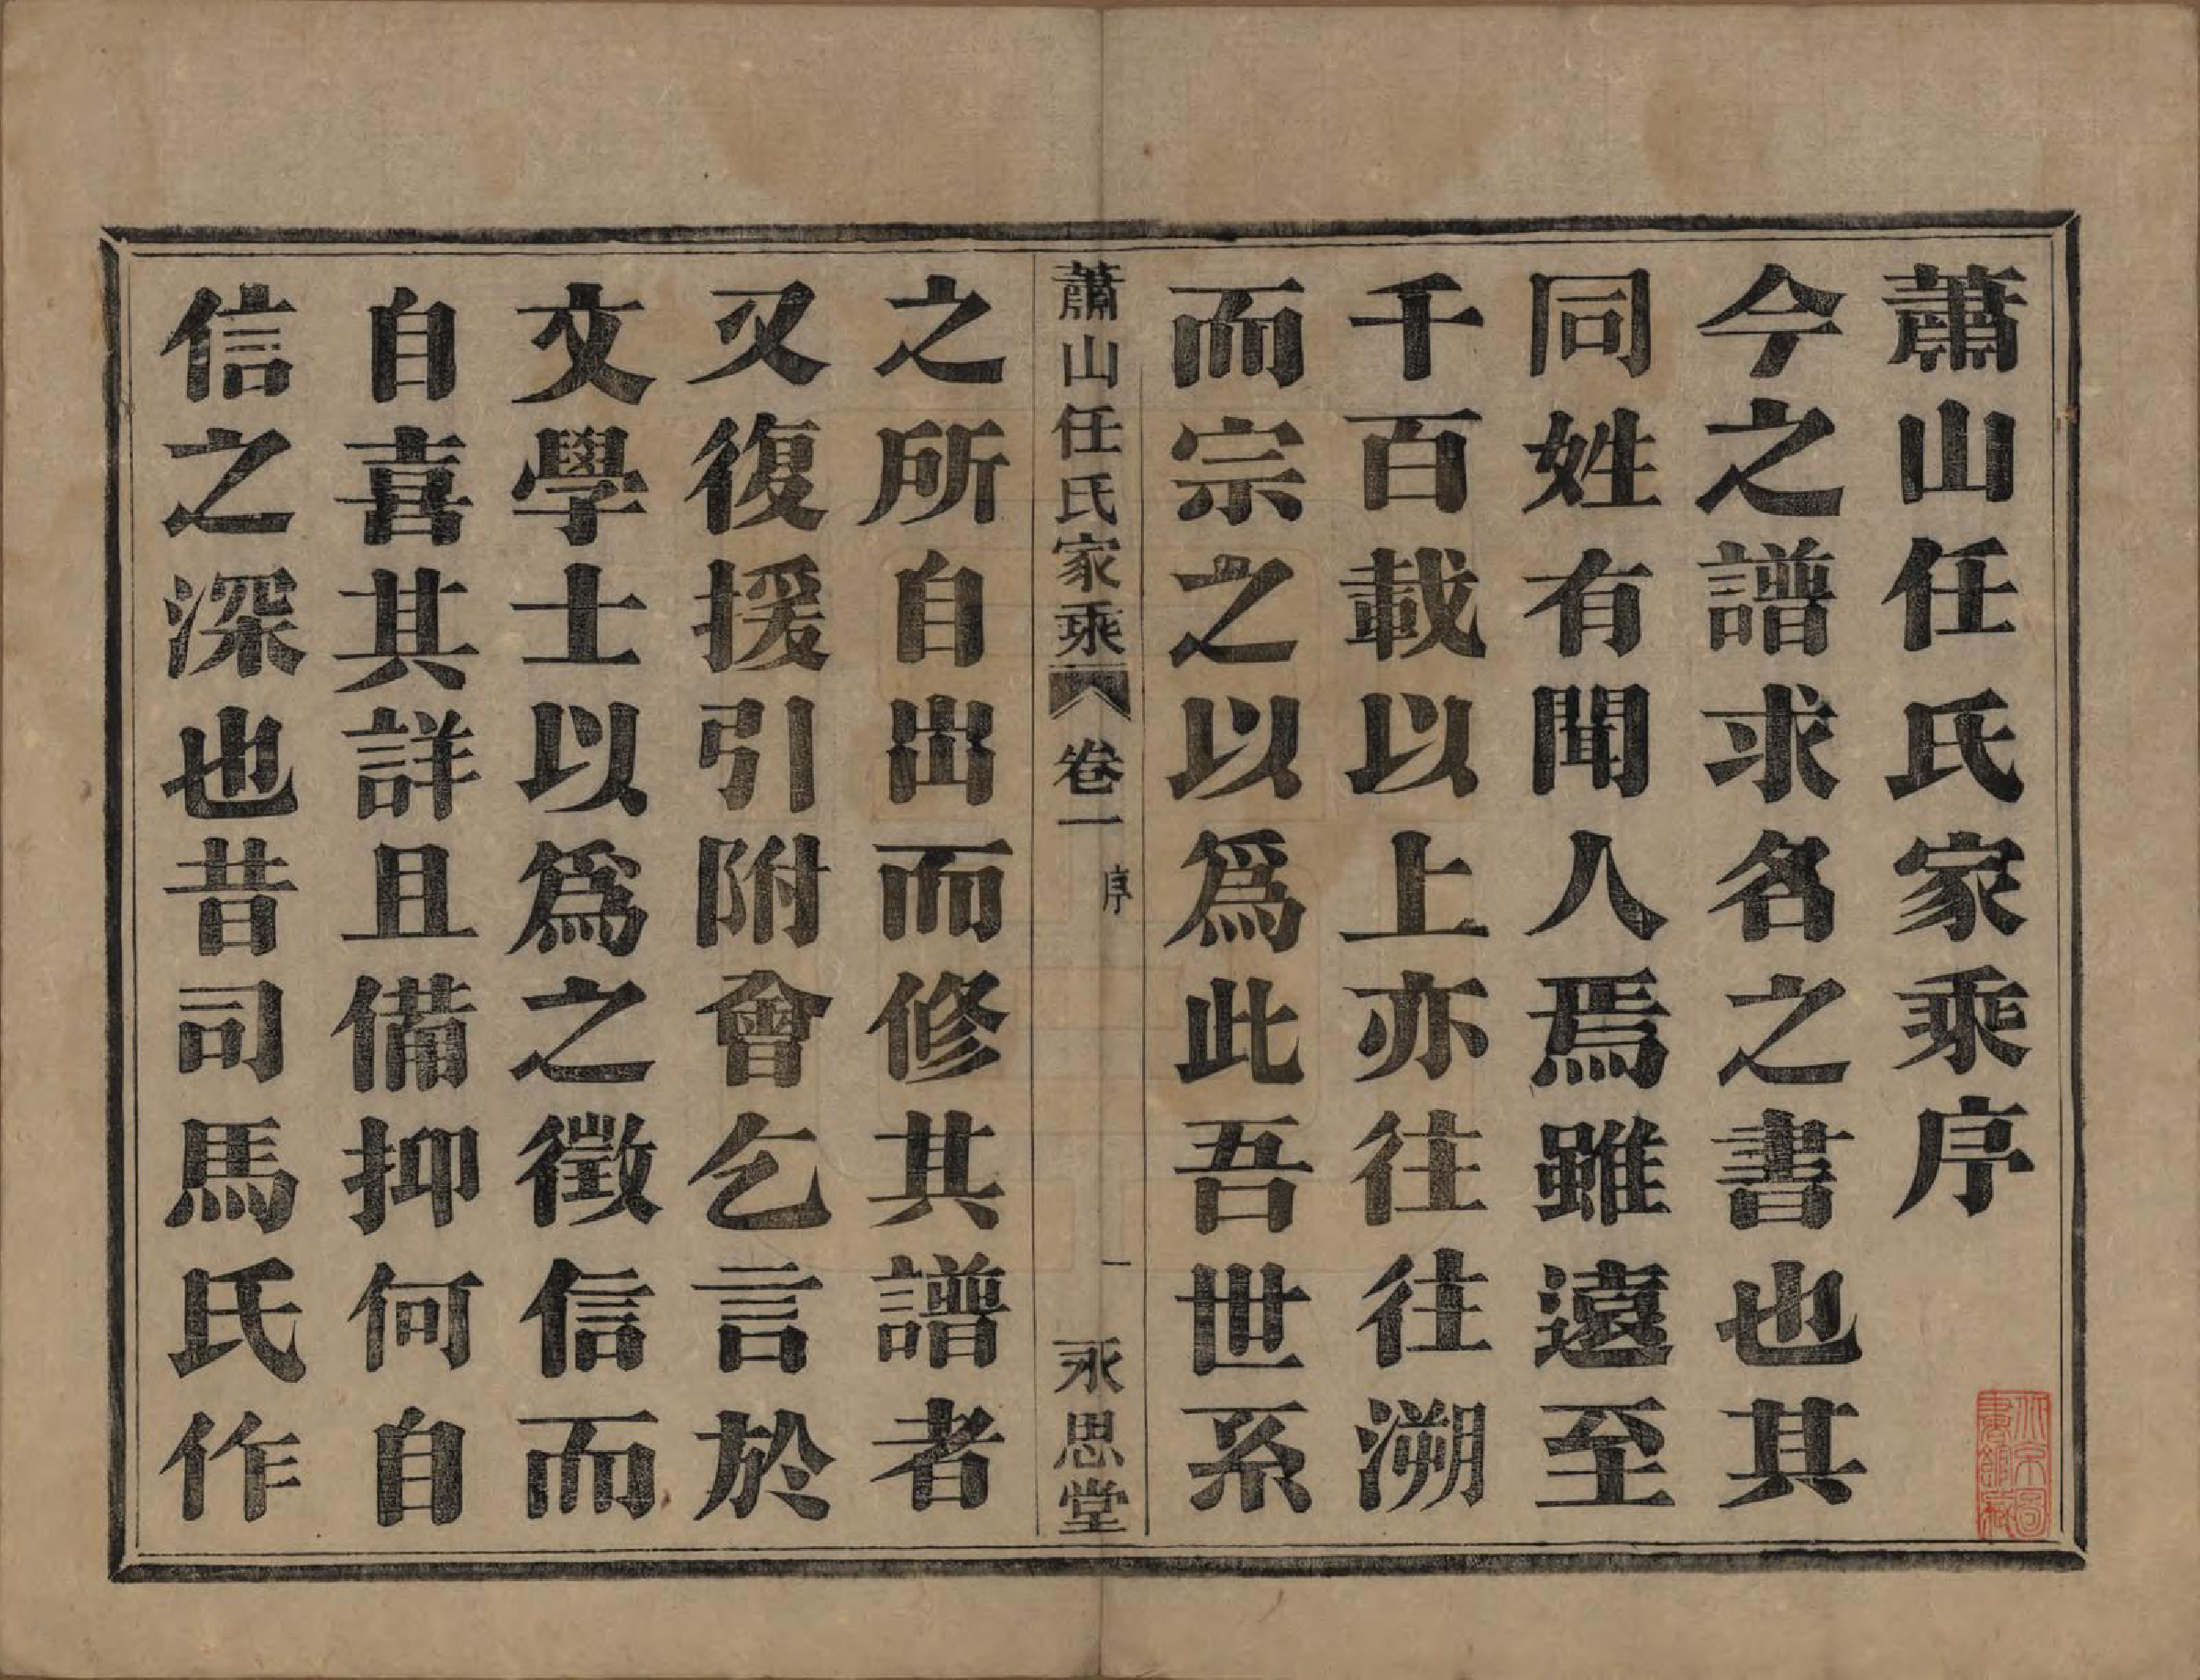 蕭山任氏家乘序
今之譜求名之書也其
同姓有聞人焉雖遠至
千百載以上亦往往溯
而宗之以爲此吾世系
蕭山任氏家乘
卷一
序
一
永思堂
之所自出而修其譜者
又復援引附會乞言於
文學士以爲之徵信而
自喜其詳且備抑何自
信之深也昔司馬氏作
北京圖
書館藏